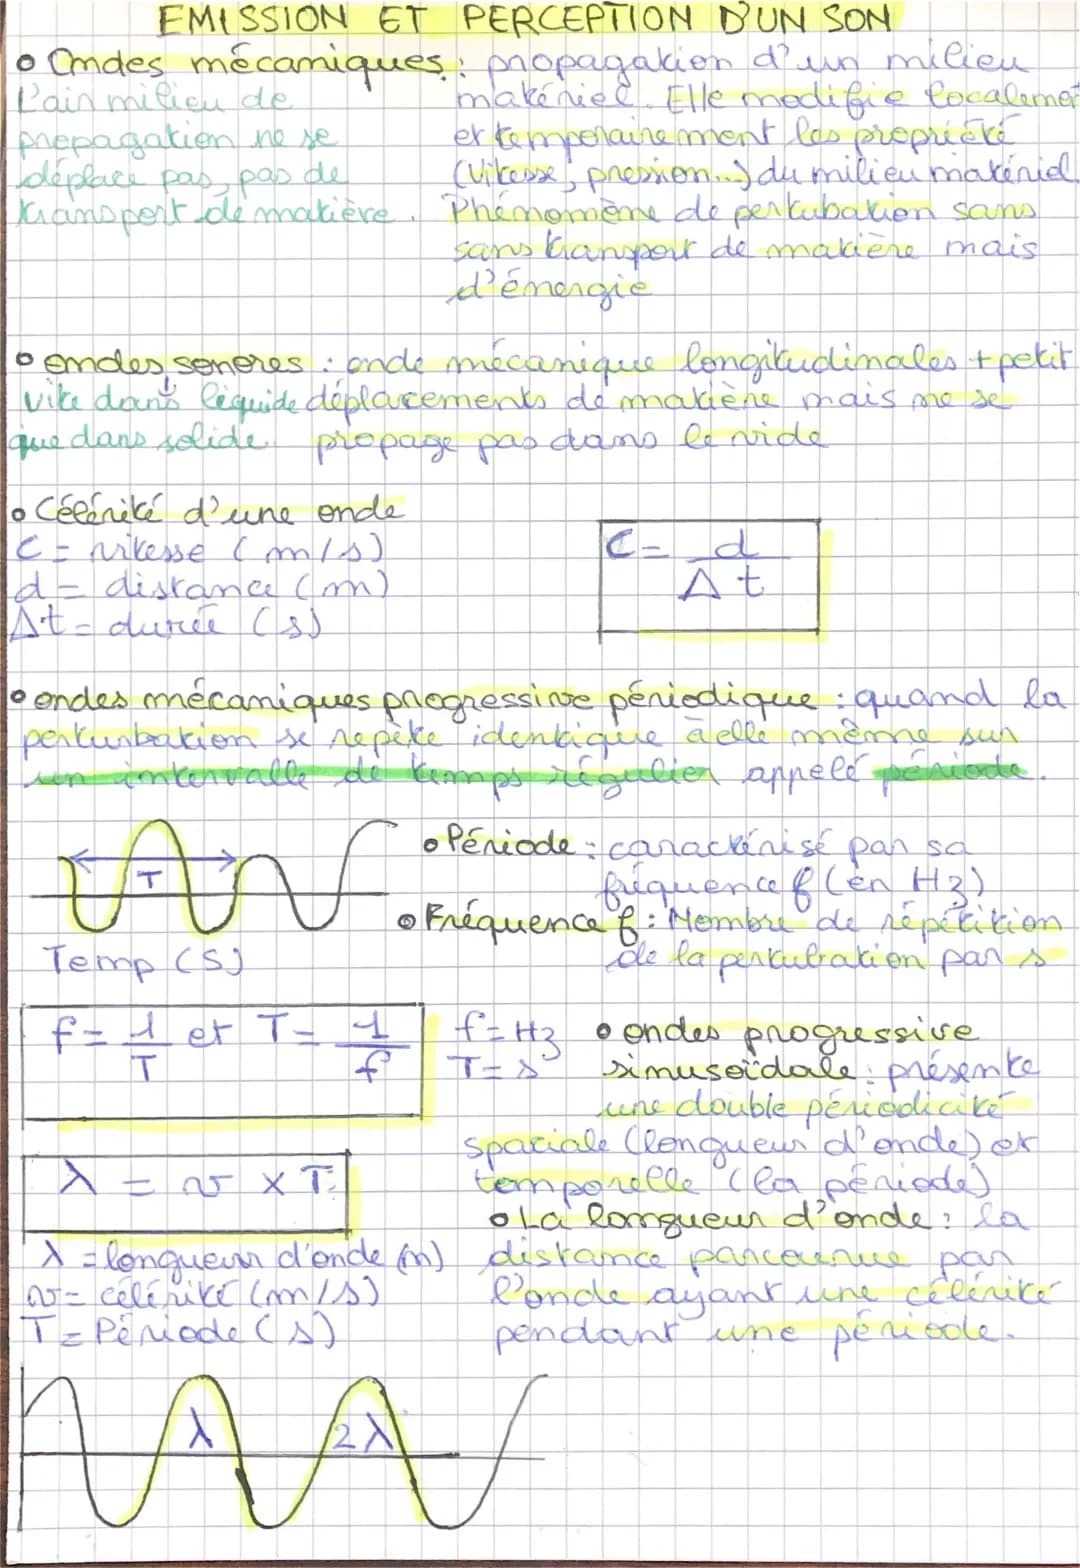 EMISSION ET PERCEPTION D'UN SON
• Ondes mécaniques : propagation d'un milieu
L'air milieu de
propagation ne se
déplace pas, pas de
transport de matière.
matériel. Elle modifie localement
et temporairement les propriété
(vitesse, pression...) du milieu matériel.
Phénomème de pertubation sans
sans transport de matière mais
d'énergie
• ondes sonores : onde mécanique longitudinales + petit
vite dans liquide
que dans solide
déplacements de matière mais ne se
propage pas dans le vide
• Célérité d'une onde
C = vitesse (m/s)
d = distance (m)
Δt = durée (s)
C = d
Δt
• ondes mécaniques progressive périodique : quand la
perturbation se répète identique à elle même sur
un intervalle de temps régulier appelé période.
T
Temp (S)
• Période : caractérisé par sa
fréquence f (en Hz)
• Fréquence f : Nombre de répétition
de la pertubation par s
f = 1/T et T = 1/f
f = Hz
T = s
• ondes progressive
sinusoïdale : présente
une double périodicité
spaciale (longueur d'onde) et
temporelle (la période)
λ = v x T
λ = longueur d'onde (m)
v = célérité (m/s)
T = Période (s)
• La longueur d'onde : la
distance parcourue par
l'onde ayant une célérité
pendant une période.
λ 2λ